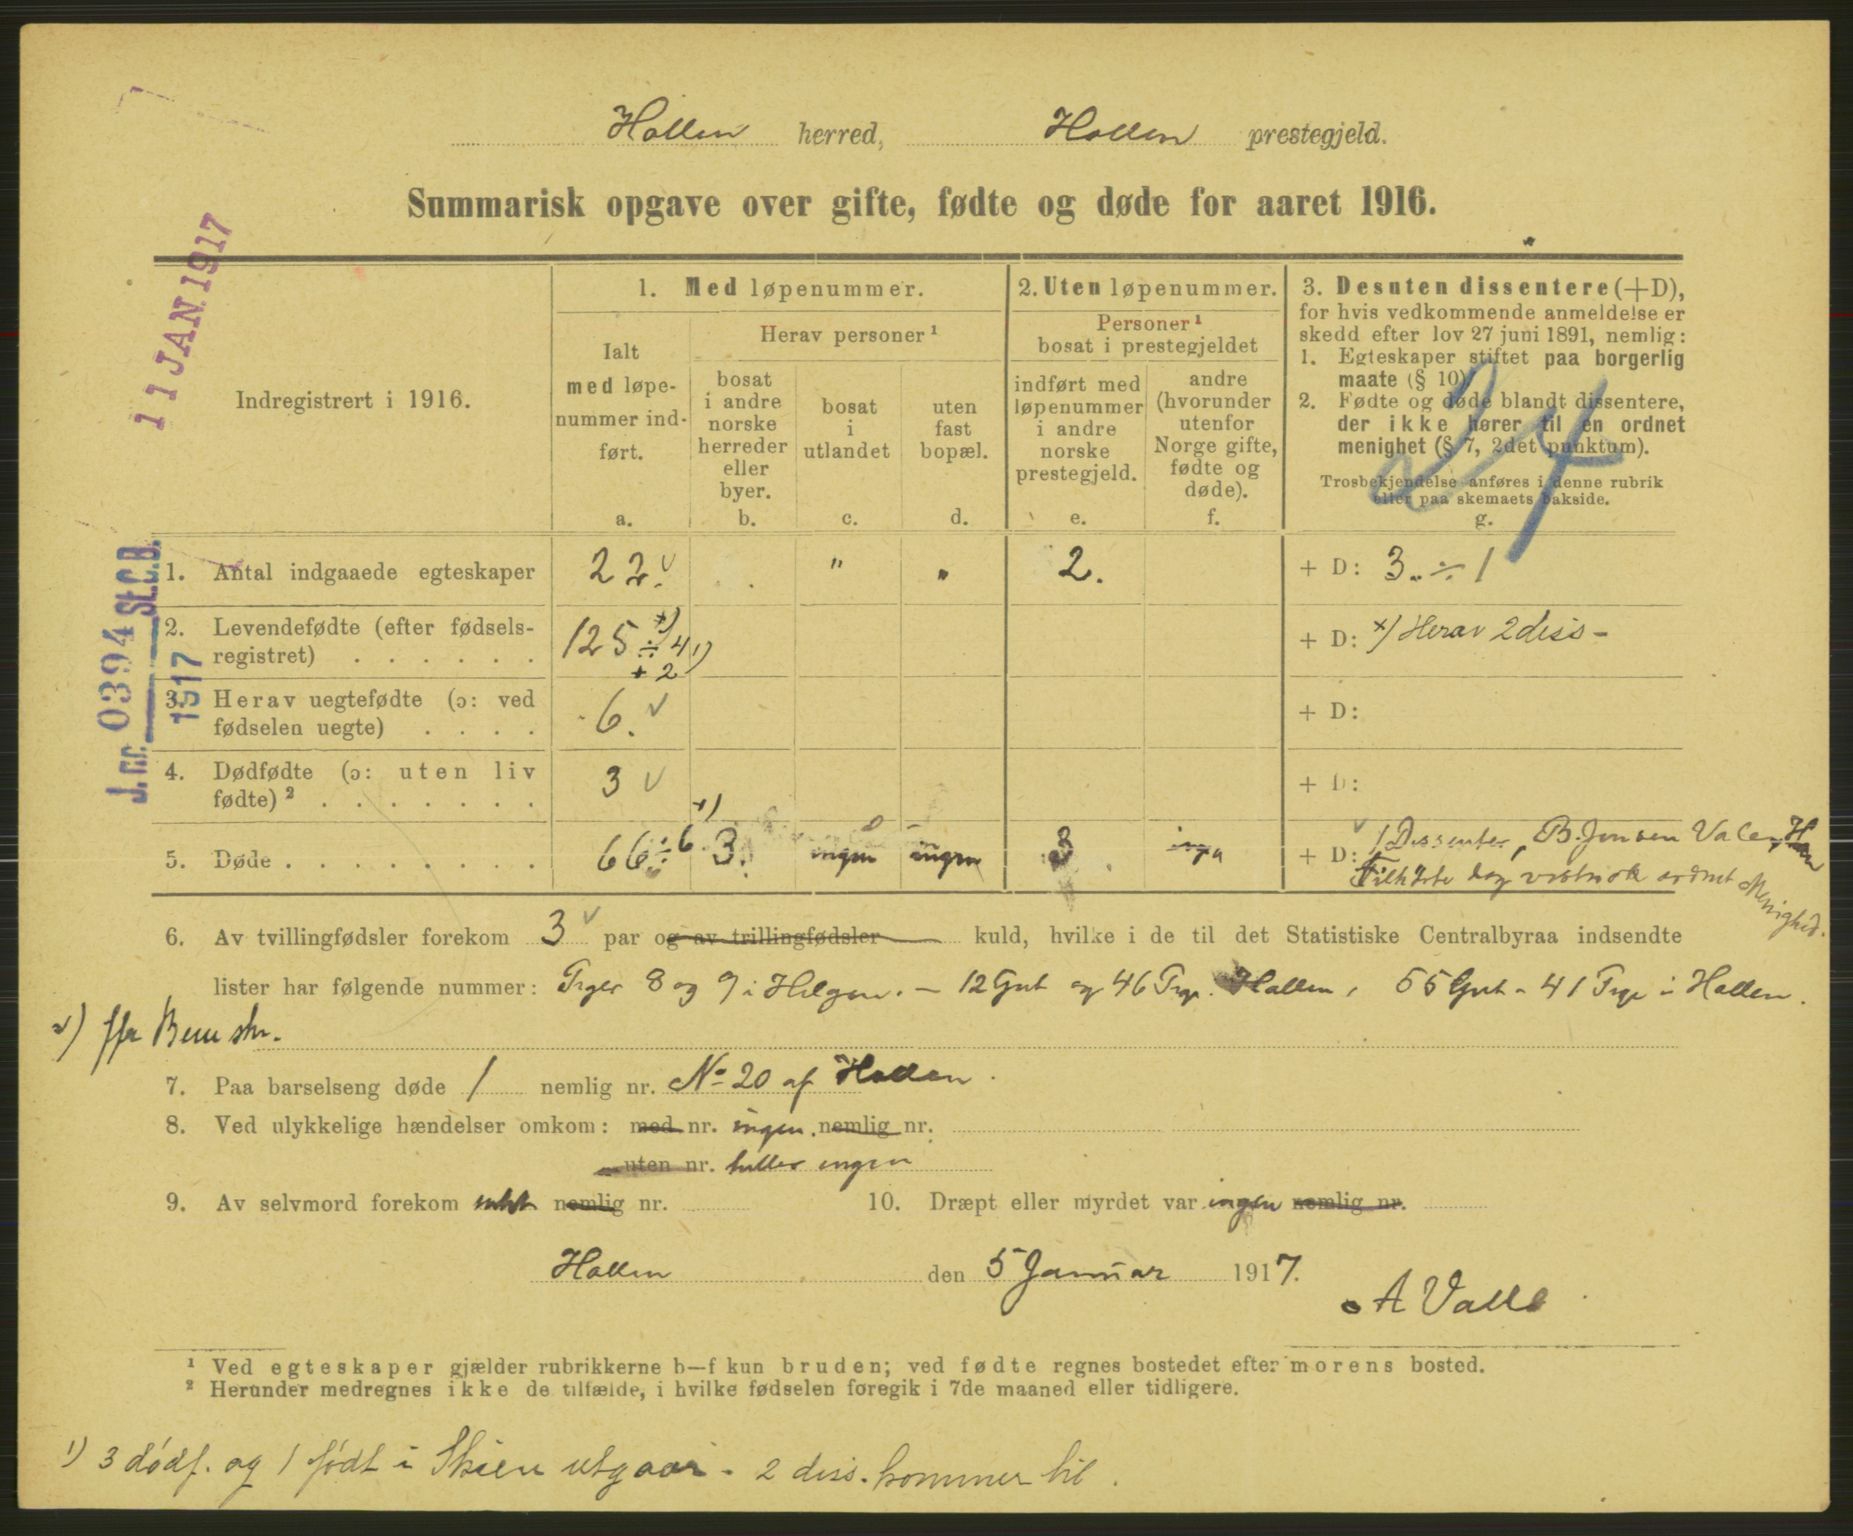 Hollen herred, Hollen prestegjeld.
Summarisk opgave over gifte, fødte og døde for aaret 1916.
11 JAN. 1917
J. nr. 0394 St.C.B.
1917
24
Indregistrert i 1916.
1. Med løpenummer.
Ialt
med løpe-
nummer ind-
ført.
a.
Herav personer ¹
bosat
i andre
norske
herreder
eller
byer.
b.
bosat
i
utlandet
c.
uten
fast
bopæl.
d.
2. Uten løpenummer.
Personer ¹
bosat i prestegjeldet
indført med
løpenummer
i andre
norske
prestegjeld.
e.
andre
(hvorunder
utenfor
Norge gifte,
fødte og
døde).
f.
3. Desuten dissentere (+D),
for hvis vedkommende anmeldelse er
skedd efter lov 27 juni 1891, nemlig:
1. Egteskaper stiftet paa borgerlig
maate (§ 10)
2. Fødte og døde blandt dissentere,
der ikke hører til en ordnet
menighet (§ 7, 2det punktum).
Trosbekjendelse anføres i denne rubrik
eller paa skemaets bakside.
g.
1. Antal indgaaede egteskaper 22. v " " 2. + D: 3 ÷ 1
2. Levendefødte (efter fødsels-
registret) . . . . . . 125 ÷ 4 x) 1) + 2 + D: x) Herav 2 diss -
3. Herav uegtefødte (ɔ: ved
fødselen uegte) . . . . 6. v + D:
4. Dødfødte (ɔ: uten liv
fødte) ² . . . . . . . 3 v + D:
5. Døde . . . . . . . . 66 ÷ 6 x) 3. ingen ingen 3. + D: 1 Dissenter, B. Jensen
Menighed.
6. Av tvillingfødsler forekom 3 v par og av trillingfødsler kuld, hvilke i de til det Statistiske Centralbyraa indsendte
lister har følgende nummer: Piger 8 og 9 i Helgen. - 12 Gut og 46 Pige Hollen, 55 Gut - 41 Pige i Hollen.
7. Paa barselseng døde 1 nemlig nr. No 20 af Hollen.
8. Ved ulykkelige hændelser omkom: med nr. ingen. nemlig nr.
uten nr. heller ingen
9. Av selvmord forekom intet nemlig nr.
10. Dræpt eller myrdet var ingen nemlig nr.
Hollen den 5 Januar 1917.
A Valle
¹ Ved egteskaper gjælder rubrikkerne b—f kun bruden; ved fødte regnes bostedet efter morens bosted.
² Herunder medregnes ikke de tilfælde, i hvilke fødselen foregik i 7de maaned eller tidligere.
1) 3 dødf. og 1 født i Skien utgaar - 2 diss. kommer til.